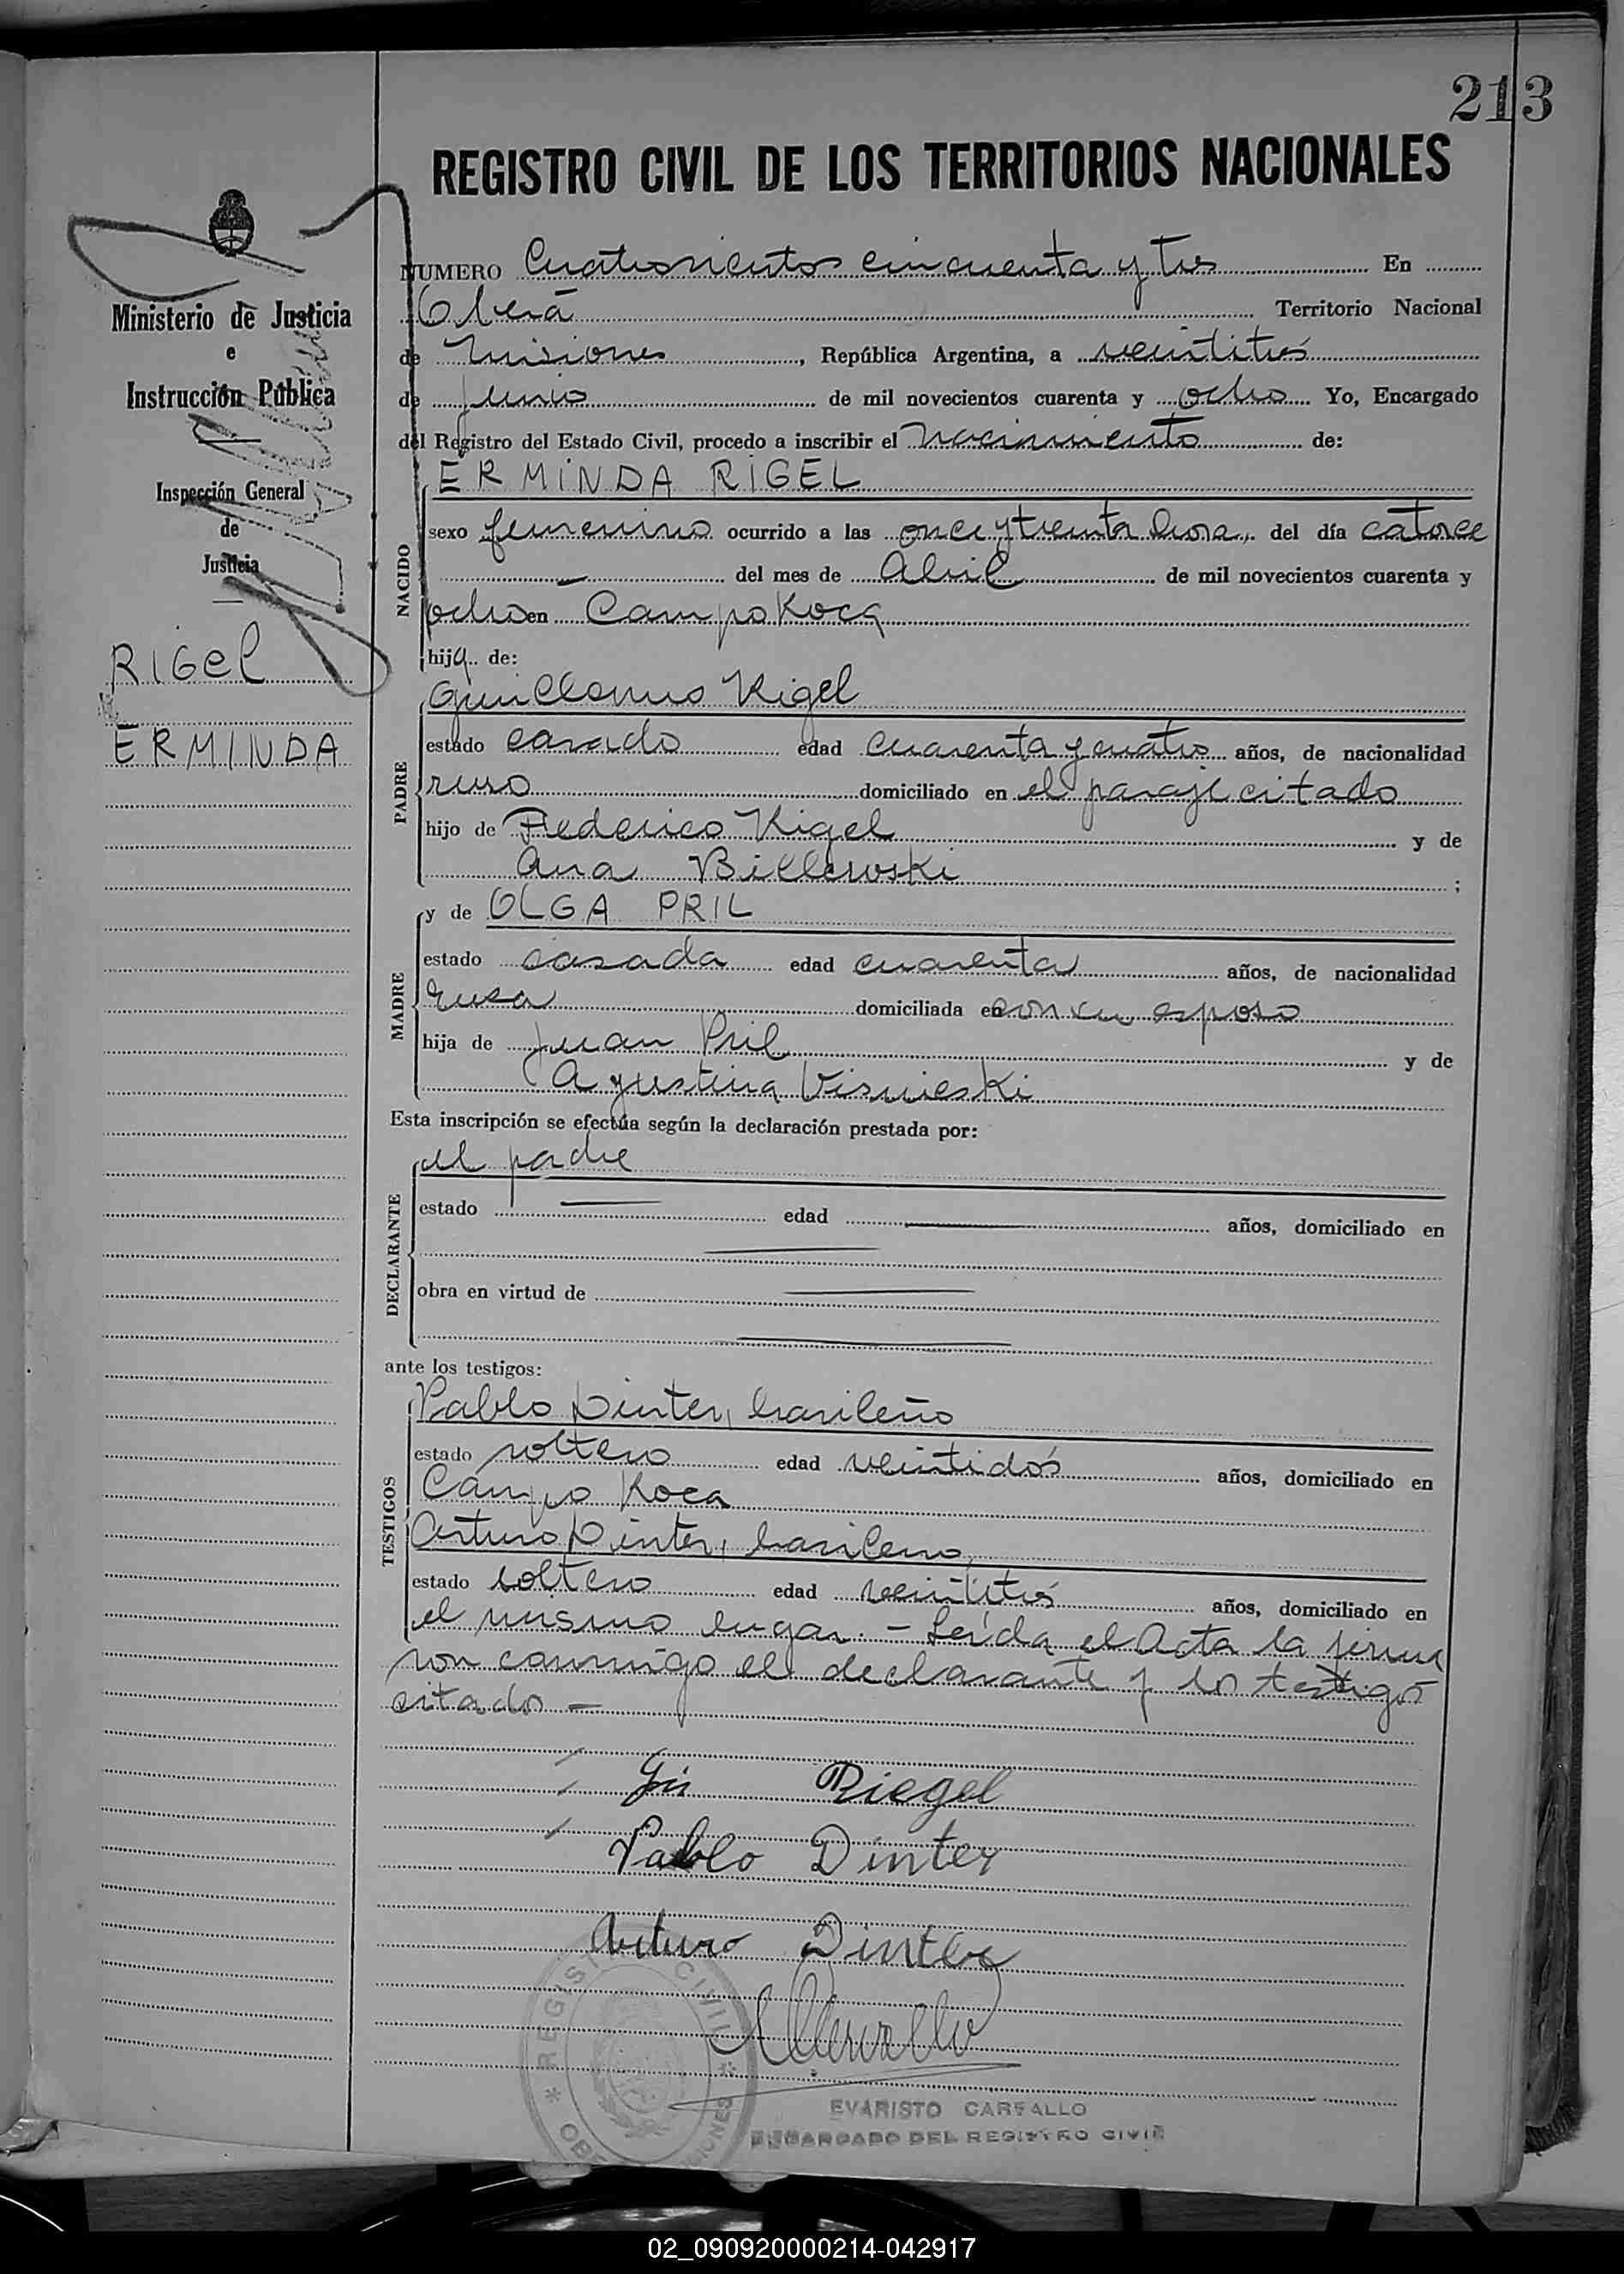 213
REGISTRO CIVIL DE LOS TERRITORIOS NACIONALES
Ministerio de Justicia
e
Instrucción Pública
Inspección General
de
Justicia
RIGEL
ERMINDA
NUMERO Cuatrocientos cincuenta y tres En
Oberá Territorio Nacional
de Misiones, República Argentina, a veintitrés
de Junio de mil novecientos cuarenta y ocho Yo, Encargado
del Registro del Estado Civil, procedo a inscribir el nacimiento de:
NACIDO
ERMINDA RIGEL
sexo femenino ocurrido a las once y treinta hora, del día catorce
— del mes de Abril de mil novecientos cuarenta y
ocho en Campo Roca
hija de:
PADRE
Guillermo Rigel
estado casado edad cuarenta y cuatro años, de nacionalidad
ruso domiciliado en el paraje citado
hijo de Federico Rigel y de
Ana Billewski ;
MADRE
y de OLGA PRIL
estado casada edad cuarenta años, de nacionalidad
rusa domiciliada en con su esposo
hija de Juan Pril y de
Agustina Visnieski
Esta inscripción se efectúa según la declaración prestada por:
DECLARANTE
el padre
estado — edad — años, domiciliado en
—
obra en virtud de —
—
ante los testigos:
TESTIGOS
Pablo Dinter, brasileño
estado soltero edad veintidós años, domiciliado en
Campo Roca
Arturo Dinter, brasileno,
estado soltero edad veintitrés años, domiciliado en
el mismo lugar. - Leída el Acta la firma
ron conmigo el declarante y los testigos
citados -
Riegel
Pablo Dinter
Arturo Dinter
REGISTRO CIVIL
EVARISTO CARVALLO
ENCARGADO DEL REGISTRO CIVIL
02_090920000214-042917